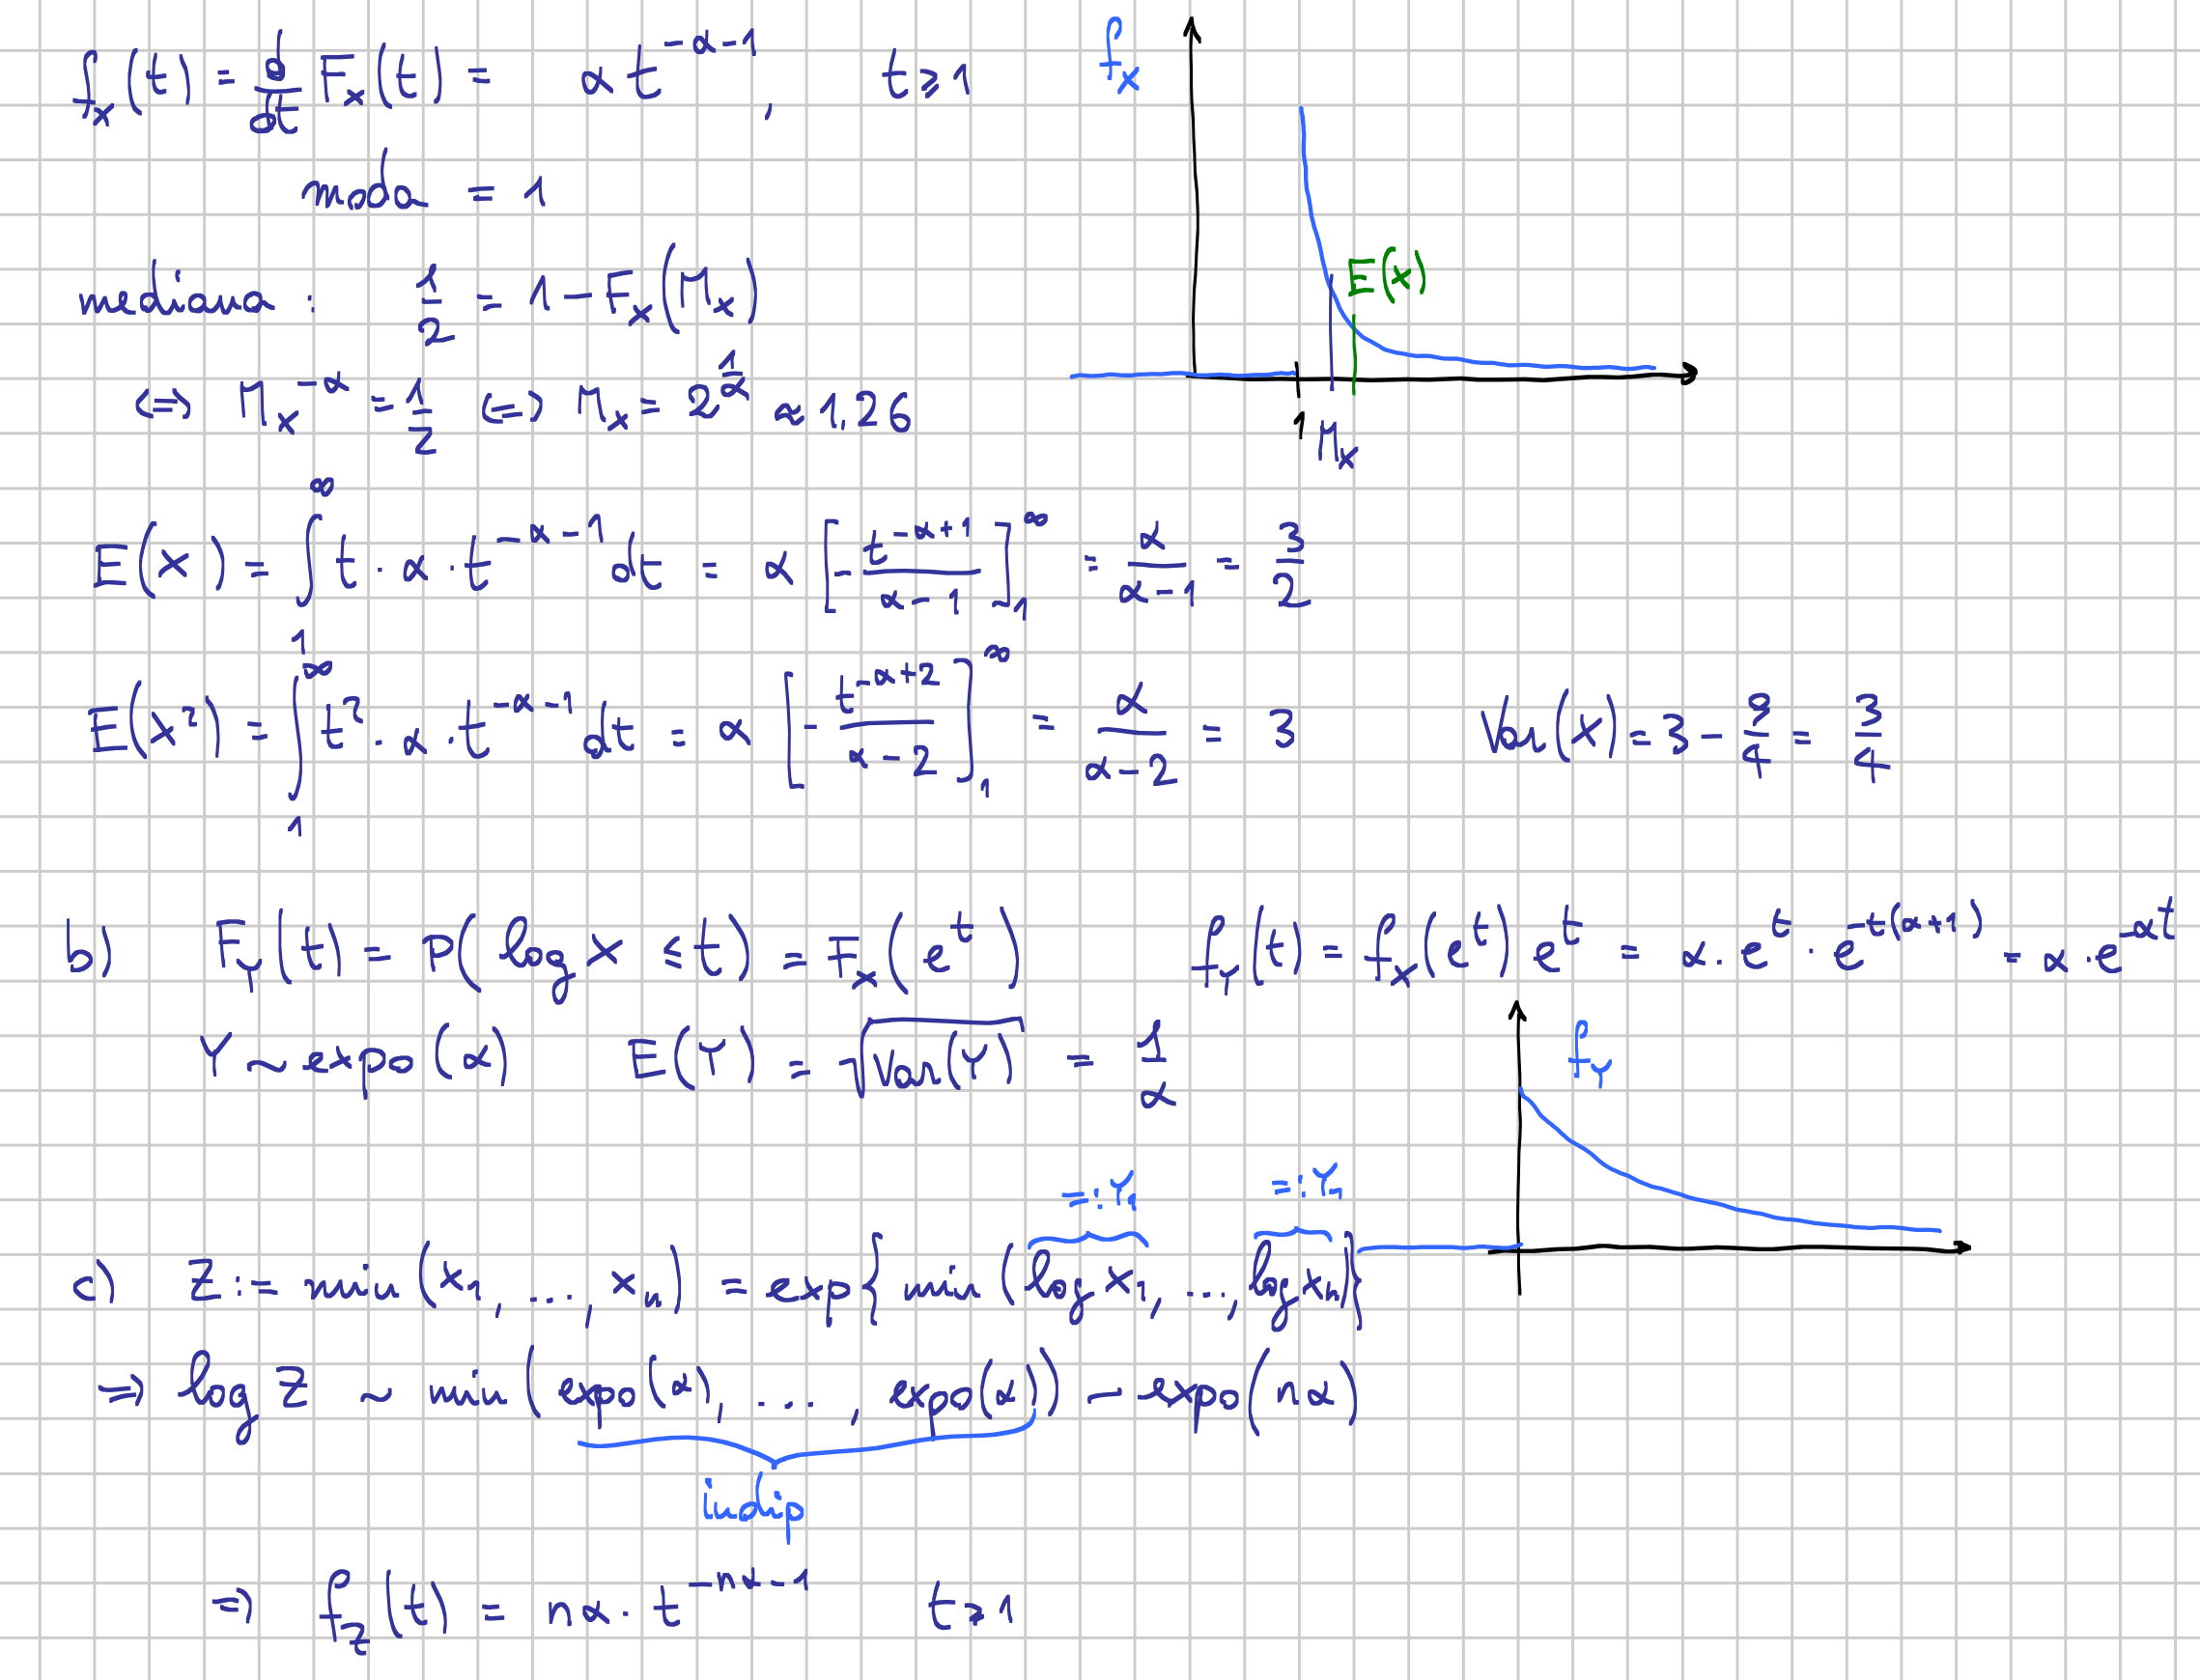 f_X(t) = d/dt F_X(t) = α t^{-α-1}, t ≥ 1
f_X
moda = 1
E(X)
mediana : 1/2 = 1 - F_X(M_X)
⇔ M_X^{-α} = 1/2 ⇔ M_X = 2^{1/α} ≈ 1,26
1 M_X
E(X) = ∫_1^∞ t · α · t^{-α-1} dt = α [- t^{-α+1} / α-1]_1^∞ = α/α-1 = 3/2
E(X²) = ∫_1^∞ t² · α · t^{-α-1} dt = α [- t^{-α+2} / α-2]_1^∞ = α/α-2 = 3 Var(X) = 3 - 9/4 = 3/4
b) F_Y(t) = P(log X ≤ t) = F_X(e^t) f_Y(t) = f_X(e^t) e^t = α · e^t · e^{-t(α+1)} = α · e^{-αt}
Y ~ expo(α) E(Y) = √Var(Y) = 1/α
f_Y
=: Y_1 =: Y_n
c) Z := min(X_1, ..., X_n) = exp{ min(log X_1, ..., log X_n)}
⇒ log Z ~ min(expo(α), ..., expo(α)) ~ expo(nα)
indip
⇒ f_Z(t) = nα · t^{-nα-1} t ≥ 1